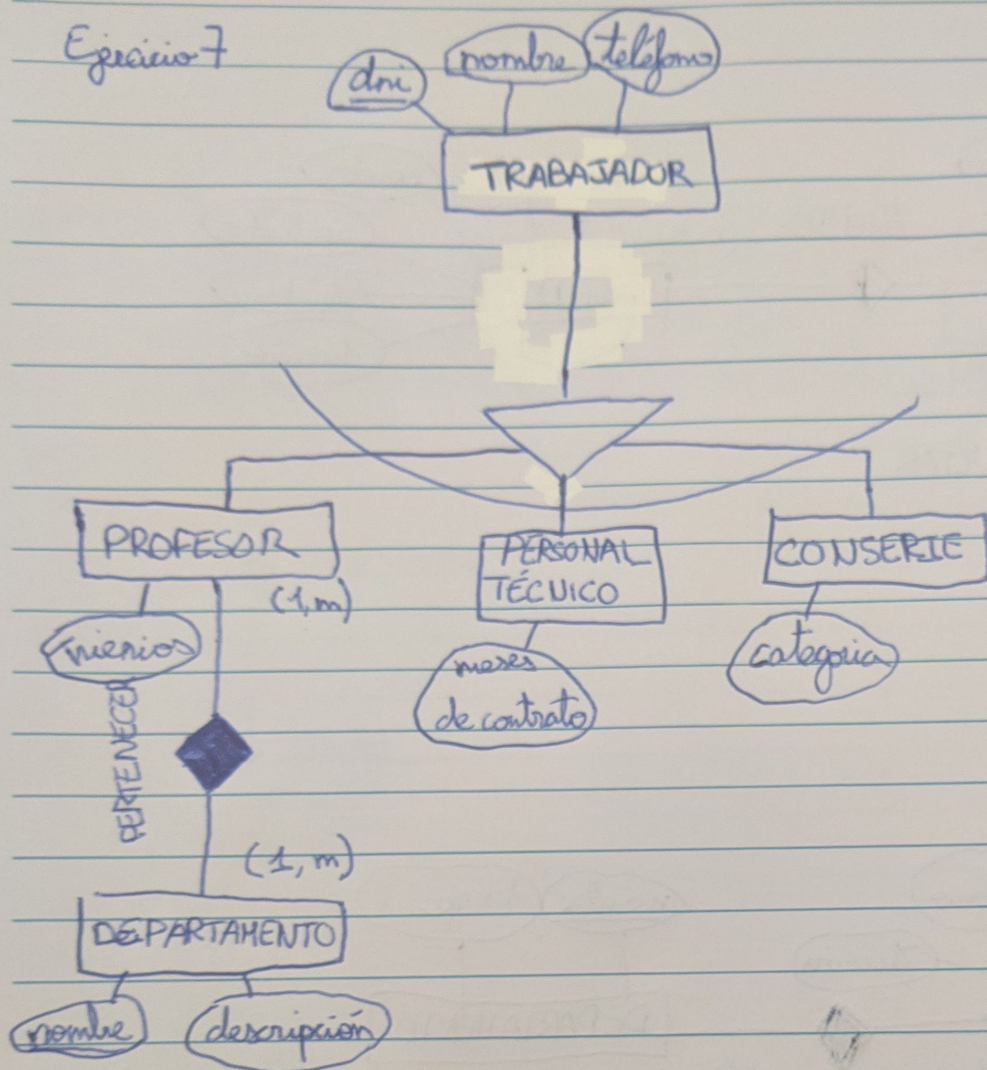 Ejercicio 7
dni
nombre
teléfono
TRABAJADOR
PROFESOR
PERSONAL
TÉCNICO
CONSERJE
(1,m)
trienios
meses
de contrato
categoria
PERTENECER
(1,m)
DEPARTAMENTO
nombre
descripción